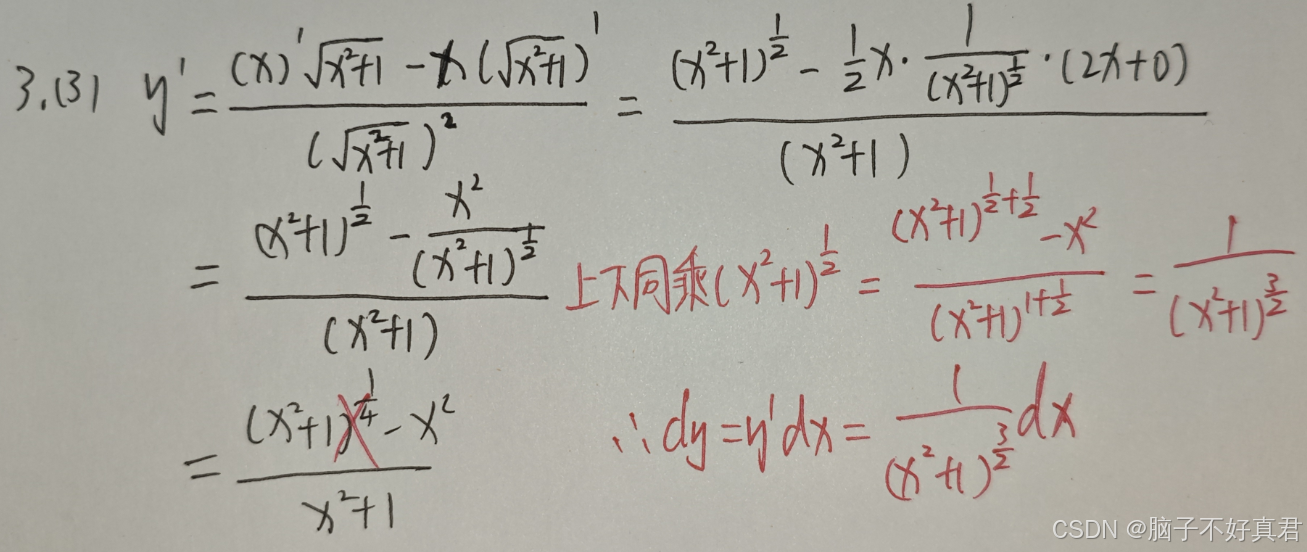 3.(3) y' = ((x)'√(x²+1) - x(√(x²+1))') / (√(x²+1))² = ((x²+1)^(1/2) - 1/2 x · 1/(x²+1)^(1/2) · (2x+0)) / (x²+1)
= ((x²+1)^(1/2) - x²/(x²+1)^(1/2)) / (x²+1) 上下同乘(x²+1)^(1/2) = ((x²+1)^(1/2+1/2) - x²) / (x²+1)^(1+1/2) = 1/(x²+1)^(3/2)
= ((x²+1)^(1/4) - x²) / (x²+1) ∴dy=y'dx= 1/(x²+1)^(3/2) dx
CSDN @脑子不好真君